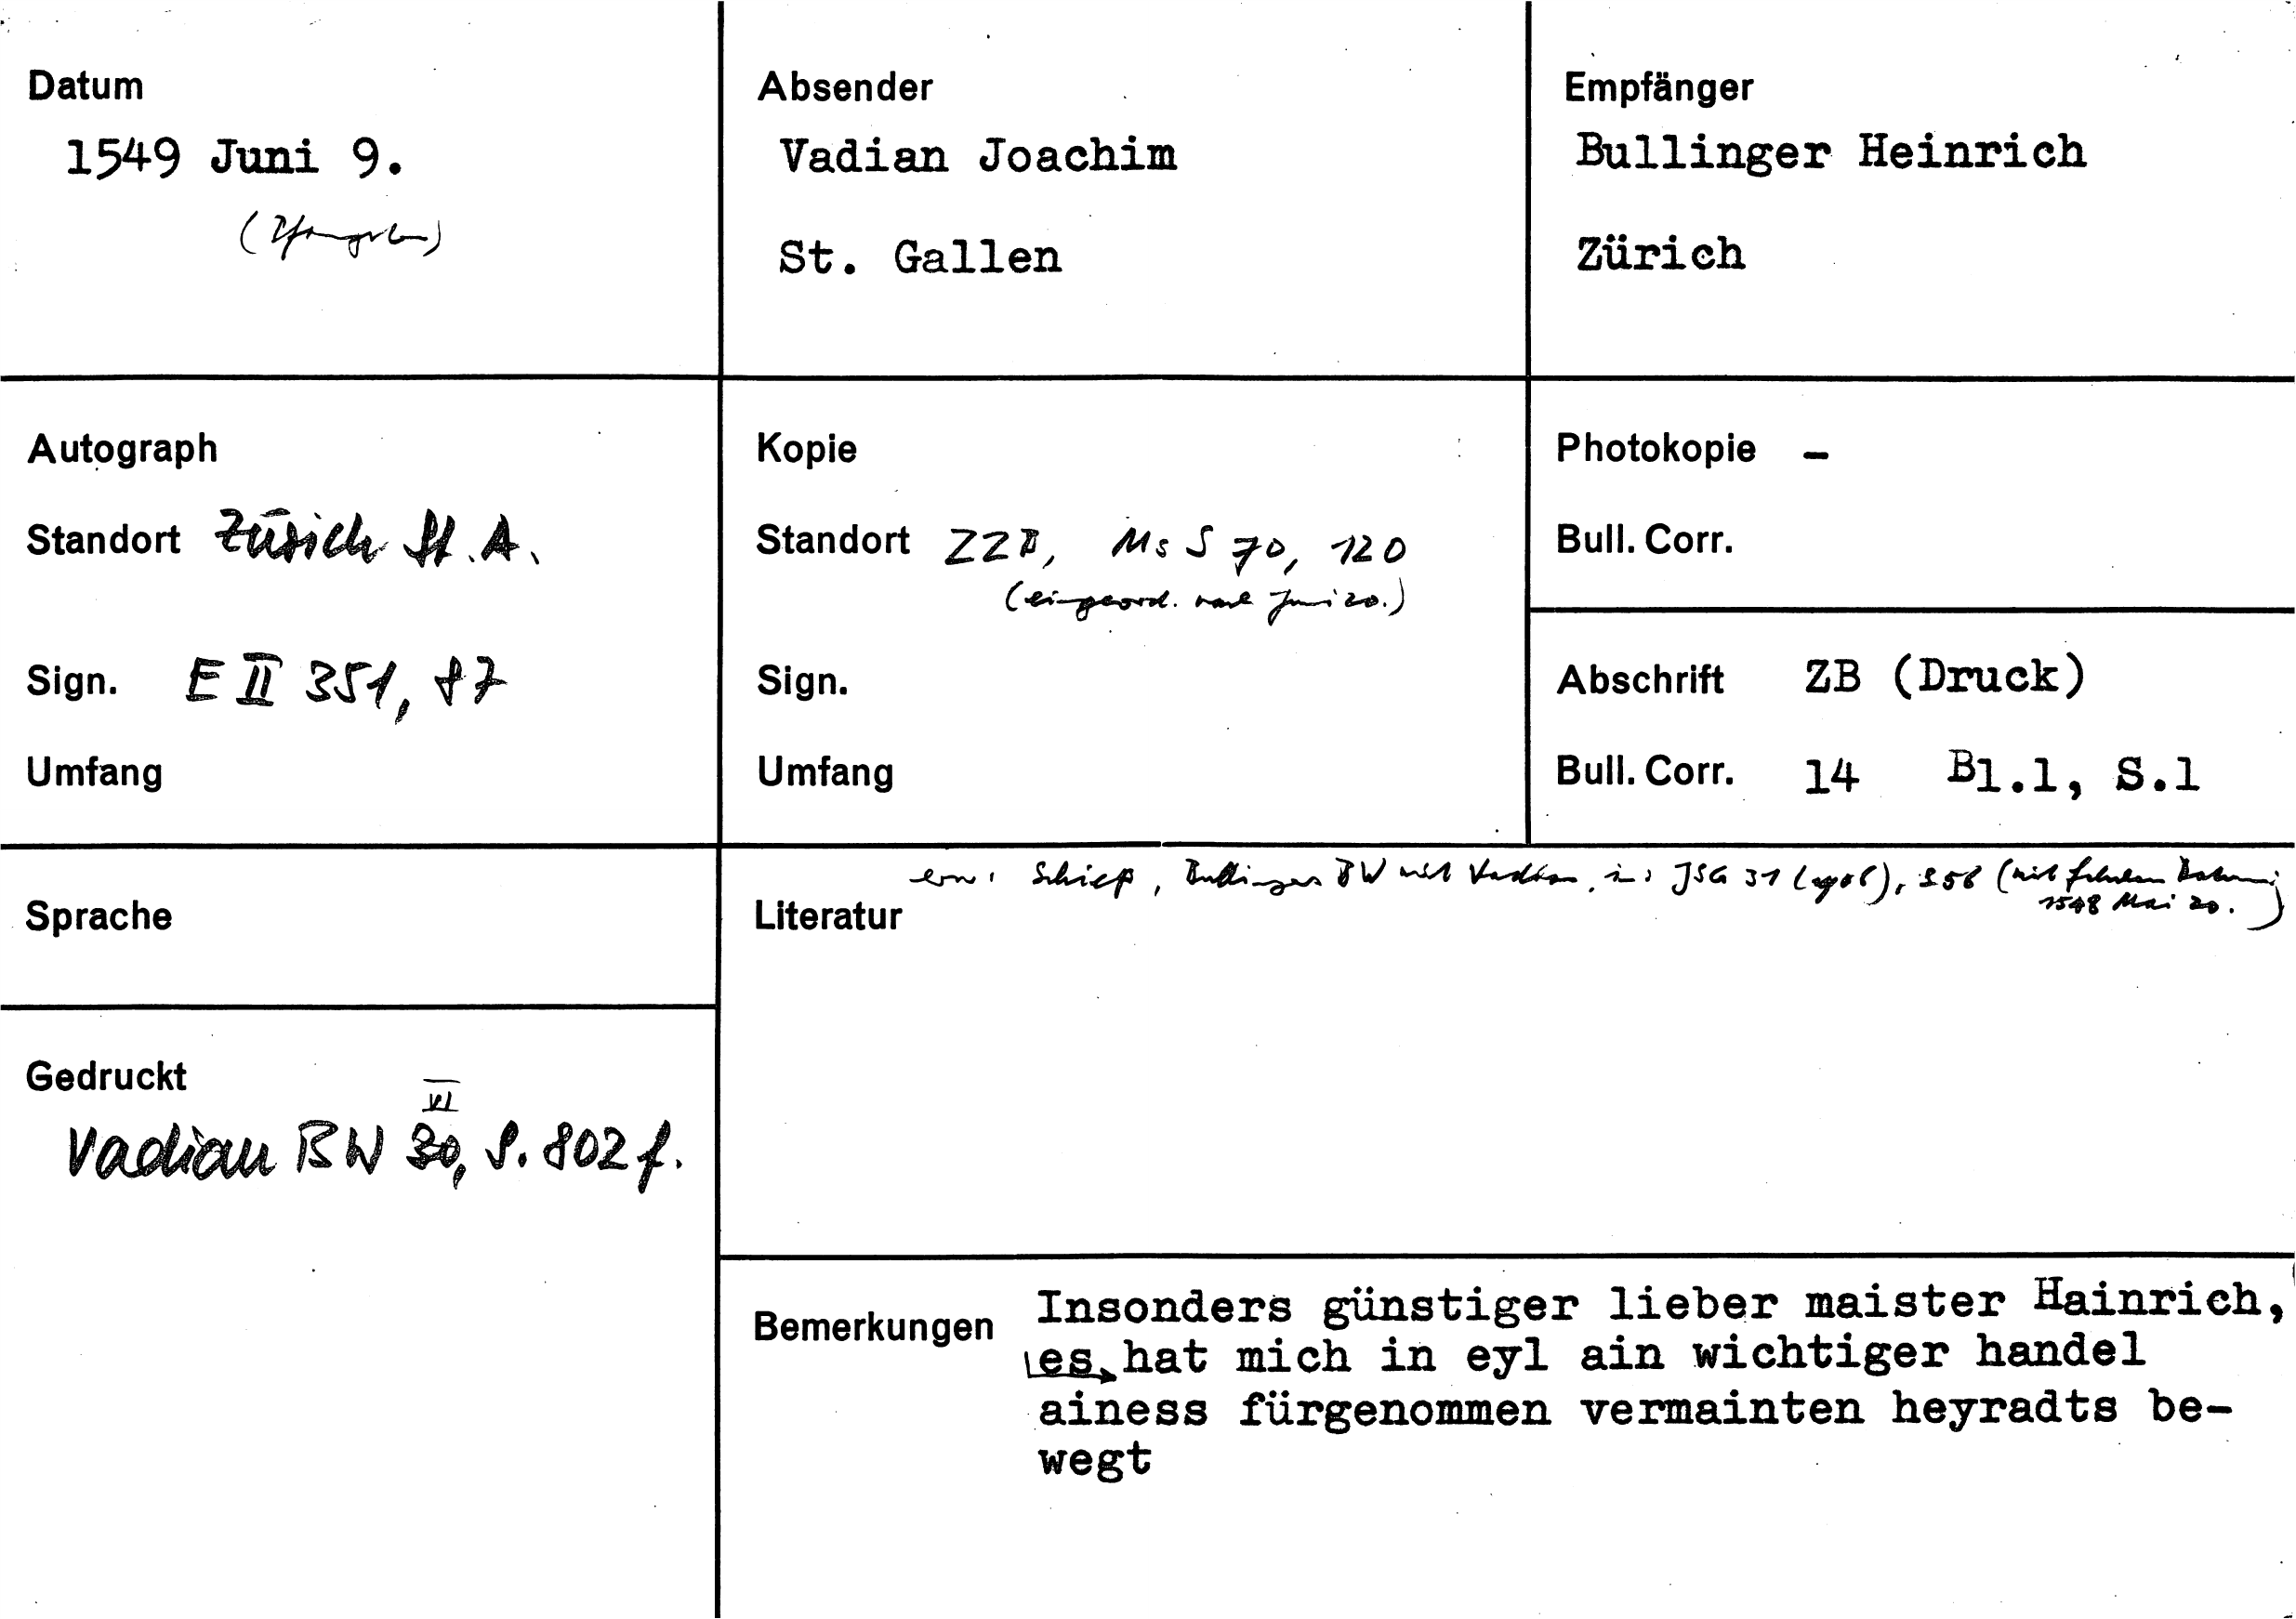 Datum
1549 Juni 9.
(Pfingsten)
Absender
Vadian Joachim
St. Gallen
Empfänger
Bullinger Heinrich
Zürich
Autograph
Standort Zürich St. A.
Sign. E II 351, 87
Umfang
Kopie
Standort ZZB, Ms S 70, 120
(eingeord. nach Juni 20.)
Sign.
Umfang
Photokopie –
Bull. Corr.
Abschrift ZB (Druck)
Bull. Corr. 14 Bl.1, S.1
Sprache
Gedruckt
VI
Vadian BW 30, S. 802 f.
erw: Schieß, Bullingers BW mit Vadian, in: JSG 31 (1906), S 56 (mit falschem Datum:
1548 Mai 20.)
Literatur
Bemerkungen Insonders günstiger lieber maister Hainrich,
es hat mich in eyl ain wichtiger handel
ainess fürgenommen vermainten heyradts be-
wegt